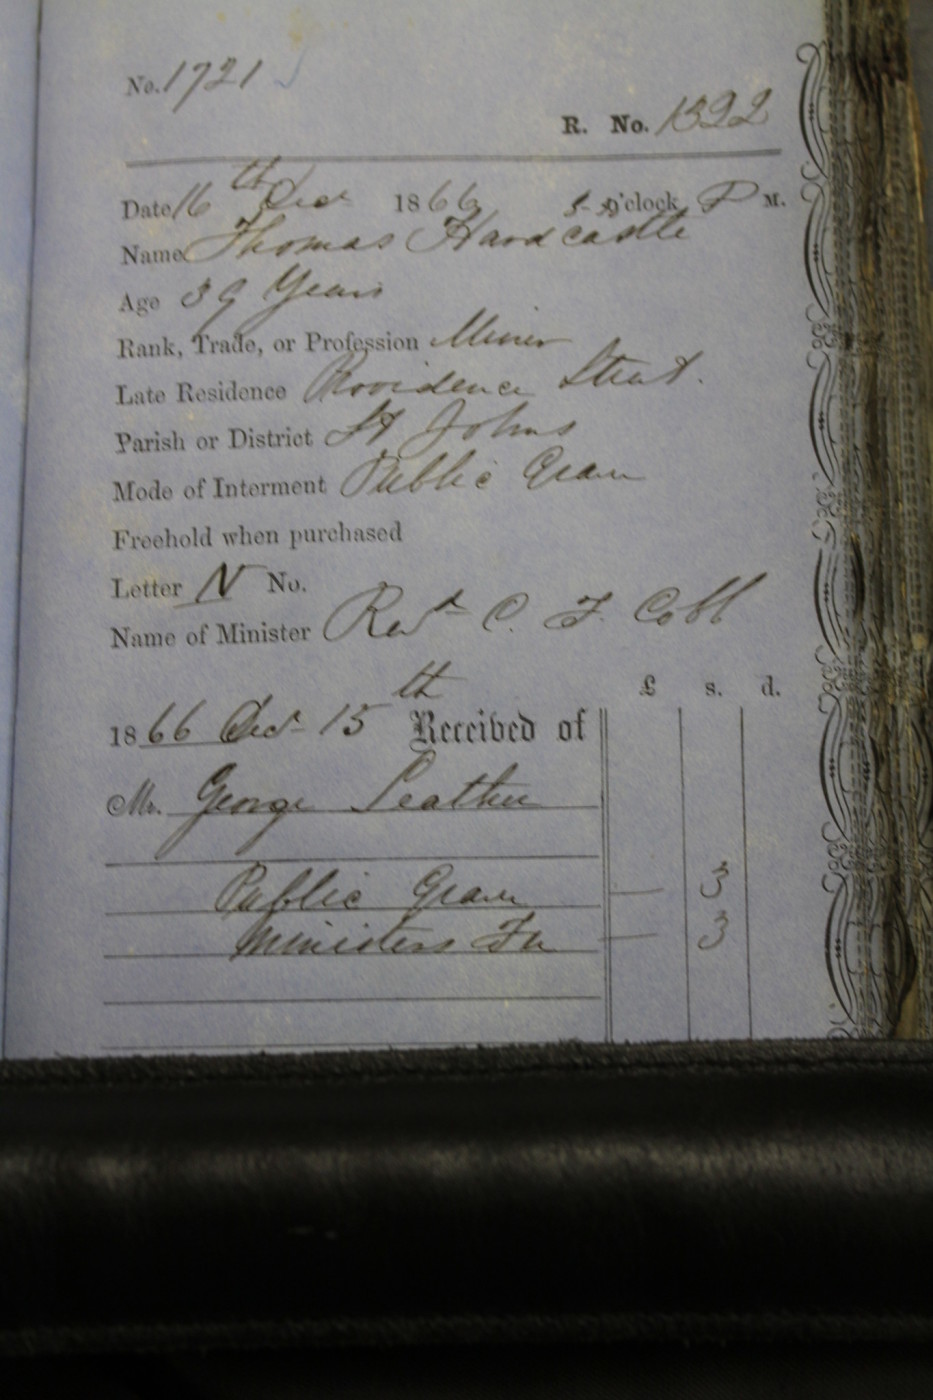 No. 1721
R. No. 1322
Date 16th Decr 1866 3 o'clock P M.
Name Thomas Hardcastle
Age 39 Years
Rank, Trade, or Profession Miner
Late Residence Providence Street.
Parish or District St Johns
Mode of Interment Public Grave
Freehold when purchased
Letter N No.
Name of Minister Revd C. F. Cobb
£ s. d.
1866 Decr 15th Received of
Mr. George Leather
Public Grave — 3
Ministers Fee — 3